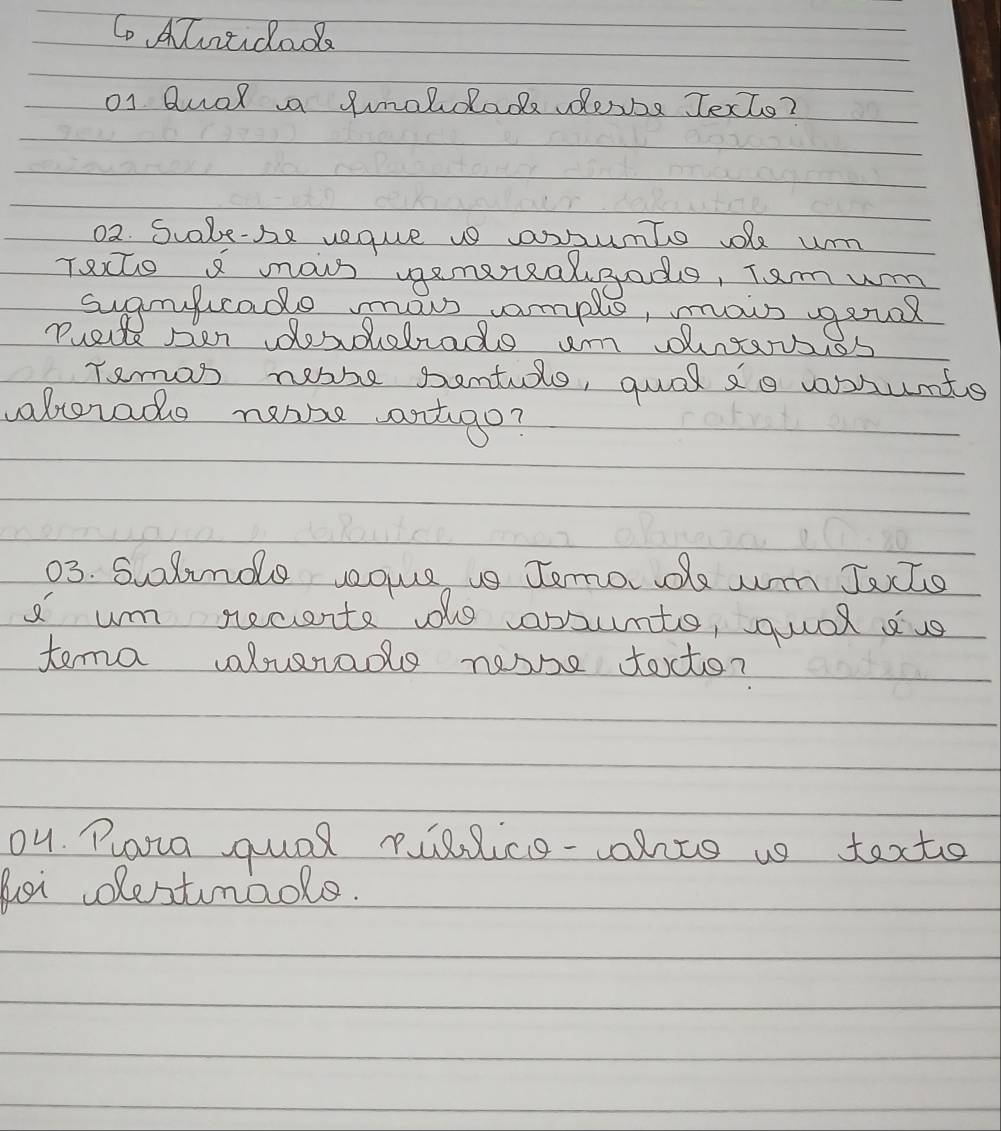 ↳ Atividade
01. Qual a finalidade desse Texto?
02. Sabe-se que o assunto de um
Texto é mais generealizado, Tem um
significado mais amplo, mais geral
Pode ser desdobrado em diversos
Temas nesse sentido, qual é o assunto
aborado nesse artigo?
03. Sabendo que o Tema de um Texto
é um recorte do assunto, qual é o
tema aborado nesse texto?
04. Para qual público-alvo o texto
foi destinado.